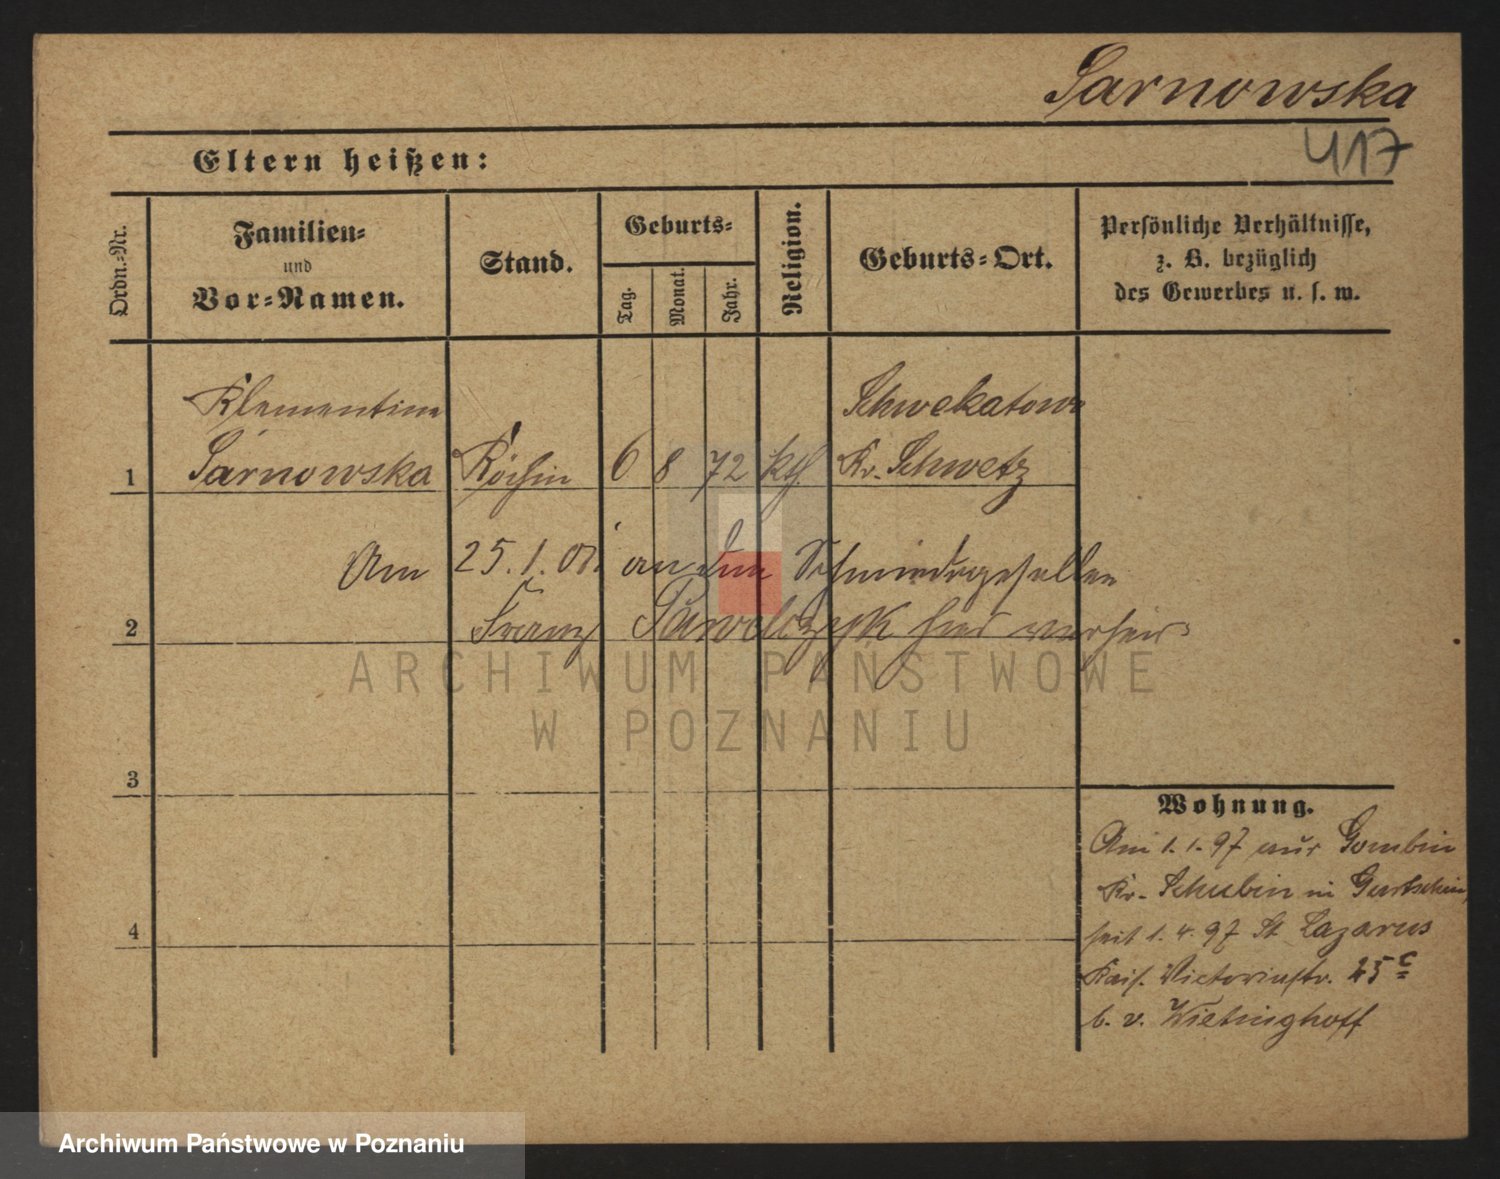 Sarnowska
417
Eltern heißen:
Ordn.-Nr.
Familien-
und
Vor-Namen.
Stand.
Geburts-
Tag.
Monat.
Jahr.
Religion.
Geburts-Ort.
Persönliche Verhältnisse,
z. B. bezüglich
des Gewerbes u. s. w.
Klementine
Schwekatowo
1 Sarnowska Köchin 6 8 72 kth. Kr. Schwetz
Am 25. 1. 01. an den Schmiedegesellen
2 Franz Pawelczyk hier verheir
ARCHIWUM PAŃSTWOWE
W POZNANIU
3
Wohnung.
Am 1. 1. 97 aus Gombin
Kr. Schubin in Gurtschin,
4
seit 1. 4. 97 St Lazarus
Kais. Victoriastr. 25c
b. v. Wietinghoff
Archiwum Państwowe w Poznaniu